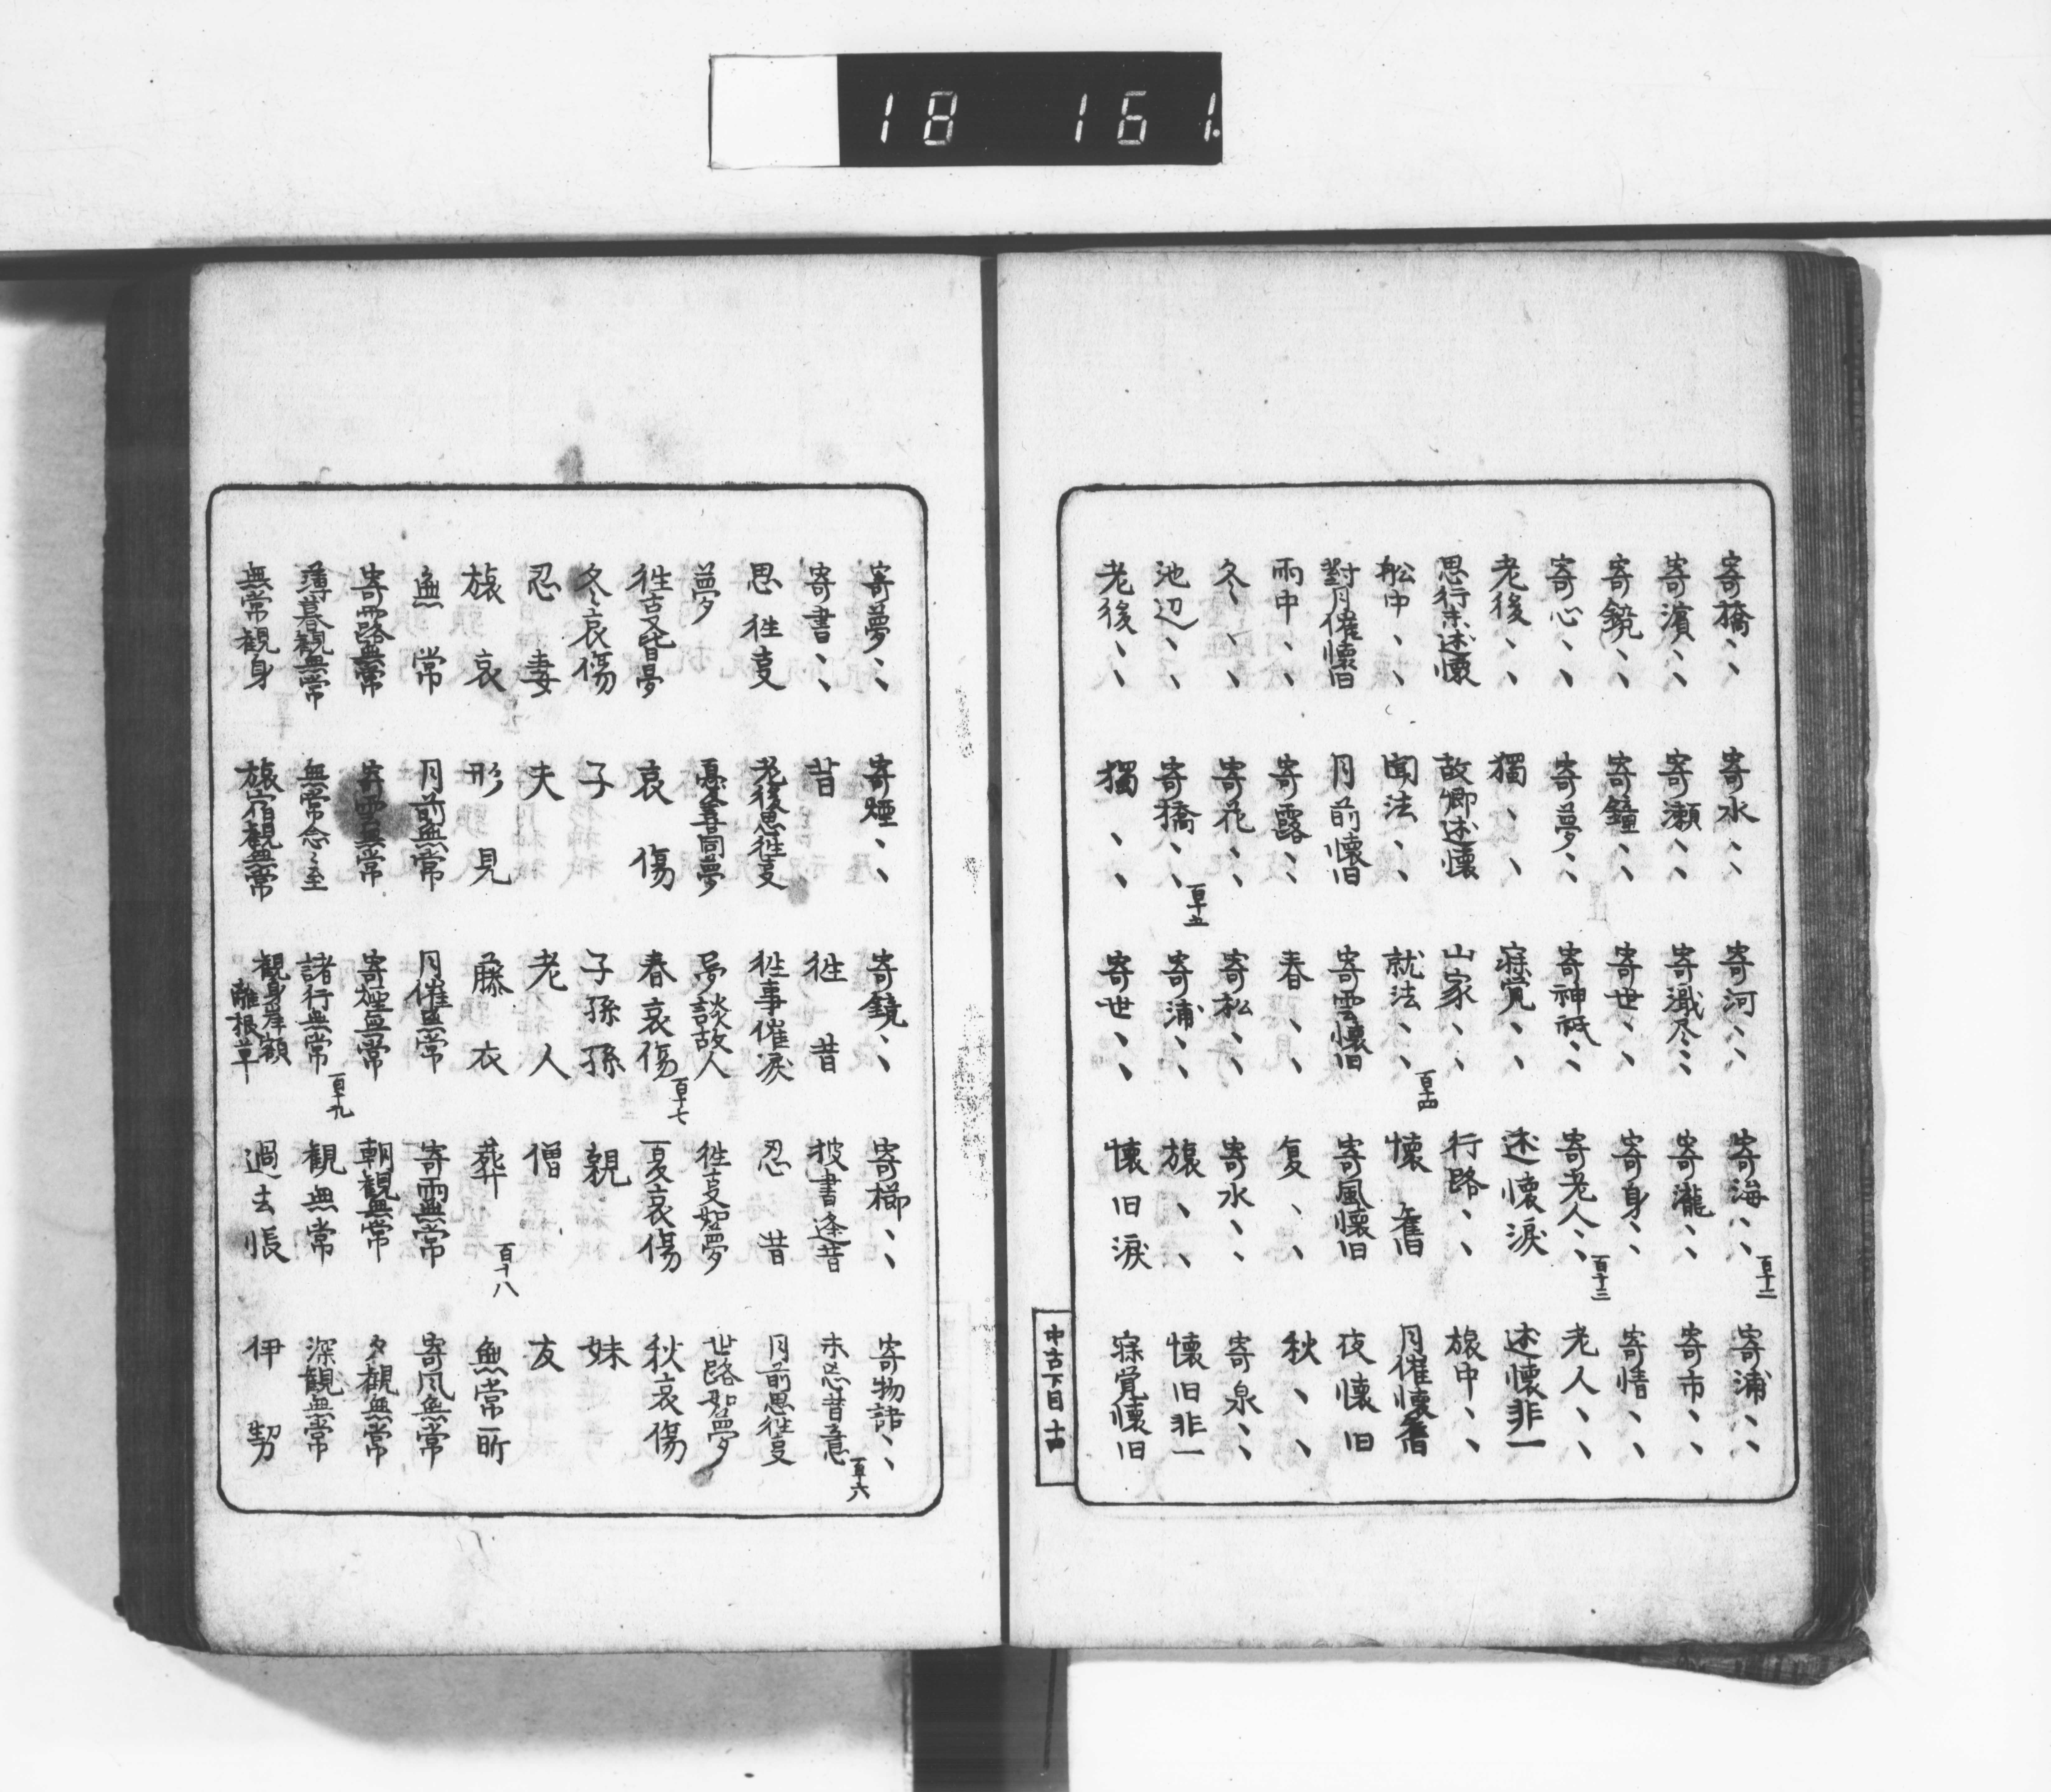 18 161.
寄橋、、 寄水、、 寄河、、 寄海、、 百十二 寄浦、、
寄濱、、 寄瀬、、 寄澱尽、、 寄瀧、、 寄市、、
寄鏡、、 寄鐘、、 寄世、、 寄身、、 寄情、、
寄心、、 寄夢、、 寄神祇、、 寄老人、、 百十三 老人、、
老後、、 獨、、 寐覚、、 述懐涙 述懐非一
思行末述懐 故郷述懐 山家、、 行路、、 旅中、、
舩中、、 聞法、、 就法、、 百十四 懐舊 月催懐舊
對月催懐旧 月前懐旧 寄雲懐旧 寄風懐旧 夜懐旧
雨中、、 寄露、、 春、、 夏、、 秋、、
冬、、 寄花、、 寄松、、 寄水、、 寄泉、、
池辺、、 寄橋、、 百十五 寄浦、、 旅、、 懐旧非一
老後、、 獨、、 寄世、、 懐旧涙 寐覚懐旧
中古下目 十四
寄夢、、 寄煙、、 寄鏡、、 寄櫛、、 寄物語、、
寄書、、 昔 徃昔 披書逢昔 未忘昔意 百十六
思徃叓 老後思徃叓 徃事催涙 忍昔 月前思徃叓
夢 憂喜同夢 夢談故人 徃叓如夢 世路如夢
徃叓皆夢 哀傷 春哀傷 百十七 夏哀傷 秋哀傷
冬哀傷 子 子孫孫 親 妹
忍妻 夫 老人 僧 友
旅哀 形見 藤衣 葬 百十八 無常所
無常 月前無常 月催無常 寄雨無常 寄風無常
寄露無常 寄雲無常 寄煙無常 朝観無常 夕観無常
薄暮観無常 無常念〻至 諸行無常 百十九 観無常 深観無常
無常観身 旅宿観無常 観身岸額離根草 過去帳 伊勢